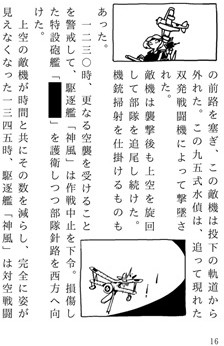 の前方を塞ぎ、この敵機は投下の軌道から
外れた。この九五式水偵は、追って現れた
双発戦闘機によって撃墜さ
れた。
敵機は襲撃後も上空を旋回
して部隊を追尾し続けた。
機銃掃射を仕掛けるものも
あった。
一二三〇時、更なる空襲を受けること
を警戒して、駆逐艦「神風」は作戦中止を下令。損傷し
た特設砲艦「
」を護衛しつつ部隊針路を西方へ向
け
上空の敵機が時間と共にその数を減らし、完全に姿が
見えなくなった一三四五時、駆逐艦「神風」は対空戦闘
16